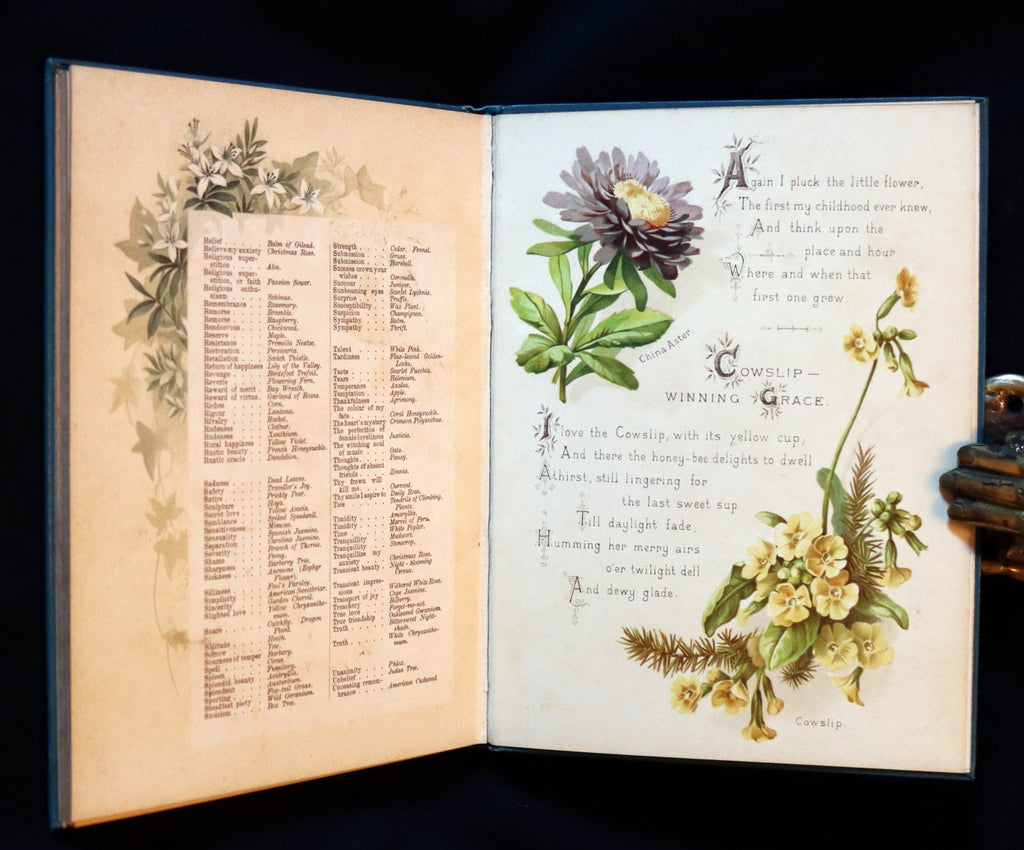 Relief . . . . . Balm of Gilead.
Relieve my anxiety Christmas Rose.
Religious super-
stition . . . . Aloe.
Religious super-
stition, or faith Passion flower.
Religious enthu-
siasm . . . . Schinus.
Remembrance . . . Rosemary.
Remorse . . . . Bramble.
Remorse . . . . Raspberry.
Rendezvous . . . Chickweed.
Reserve . . . . Maple.
Resistance . . . Tremella Nestoc.
Restoration . . . Persicaria.
Retaliation . . . Scotch Thistle.
Return of happiness Lily of the Valley.
Revenge . . . . Birdsfoot Trefoil.
Reverie . . . . Flowering Fern.
Reward of merit . Bay Wreath.
Reward of virtue . Garland of Roses.
Riches . . . . Corn.
Rigour . . . . Lantana.
Rivalry . . . . Rocket.
Rudeness . . . Clotbur.
Rudeness . . . Xanthium.
Rural happiness . Yellow Violet.
Rustic beauty . . French Honeysuckle.
Rustic oracle . . Dandelion.
Sadness . . . . Dead Leaves.
Safety . . . . Traveller's Joy.
Satire . . . . Prickly Pear.
Sculpture . . . Hoya.
Secret love . . . Yellow Acacia.
Semblance . . . Spiked Speedwell.
Sensitiveness . . Mimosa.
Sensuality . . . Spanish Jasmine.
Separation . . . Carolina Jasmine.
Severity . . . . Branch of Thorns.
Shame . . . . Peony.
Sharpness . . . Barberry Tree.
Sickness . . . . Anemone (Zephyr
Flower).
Silliness . . . . Fool's Parsley.
Simplicity . . . American Sweetbriar.
Sincerity . . . . Garden Chervil.
Slighted love . . . Yellow Chrysanthe-
mum.
Snare . . . . Catchfly. Dragon
Plant.
Solitude . . . . Heath.
Sorrow . . . . Yew.
Sourness of temper Barbary.
Spell . . . . Circæa.
Spleen . . . . Fumitory.
Splendid beauty . Amaryllis.
Splendour . . . Austurtium.
Sporting . . . . Fox-tail Grass.
Steadfast piety . . Wild Geranium.
Stoicism . . . . Box Tree.
Strength . . . . Cedar. Fennel.
Submission . . . Grass.
Submission . . . Harebell.
Success crown your
wishes . . . . Coronella.
Succour . . . . Juniper.
Sunbeaming eyes Scarlet Lychnis.
Surprise . . . . Truffle.
Susceptibility . . Wax Plant.
Suspicion . . . Champignon.
Sympathy . . . Balm.
Sympathy . . . Thrift.
Talent . . . . White Pink.
Tardiness . . . Flax-leaved Golden-
Locks.
Taste . . . . Scarlet Fuschia.
Tears . . . . Helenium.
Temperance . . . Azalea.
Temptation . . . Apple.
Thankfulness . . Agrimony.
The colour of my
fate . . . . Coral Honeysuckle.
The heart's mystery Crimson Polyanthus.
The perfection of
female loveliness Justicia.
The witching soul
of music . . . Oats.
Thoughts . . . . Pansy.
Thoughts of absent
friends . . . . Zinnia.
Thy frown will
kill me . . . . Currant.
Thy smile I aspire to Daily Rose.
Ties . . . . Tendrils of Climbing
Plants.
Timidity . . . . Amaryllis.
Timidity . . . . Marvel of Peru.
Time . . . . White Poplar.
Tranquillity . . . Mudwort.
Tranquillity . . . Stonecrop.
Tranquillize my
anxiety . . . . Christmas Rose.
Transient beauty . Night-blooming
Cereus.
Transient impres-
sions . . . . Withered White Rose.
Transport of joy . Cape Jasmine.
Treachery . . . Bilberry.
True love . . . Forget-me-not.
True friendship . Oakleaved Geranium.
Truth . . . . Bittersweet Night-
shade.
Truth . . . . White Chrysanthe-
mum.
Unanimity . . . Phlox.
Unbelief . . . . Judas Tree.
Unceasing remem-
brance . . . . American Cudweed.
Again I pluck the little flower,
The first my childhood ever knew,
And think upon the
place and hour
Where and when that
first one grew.
China Aster.
COWSLIP —
WINNING GRACE.
I love the Cowslip, with its yellow cup;
And there the honey-bee delights to dwell
Athirst, still lingering for
the last sweet sup
Till daylight fade,
Humming her merry airs
o'er twilight dell
And dewy glade.
Cowslip